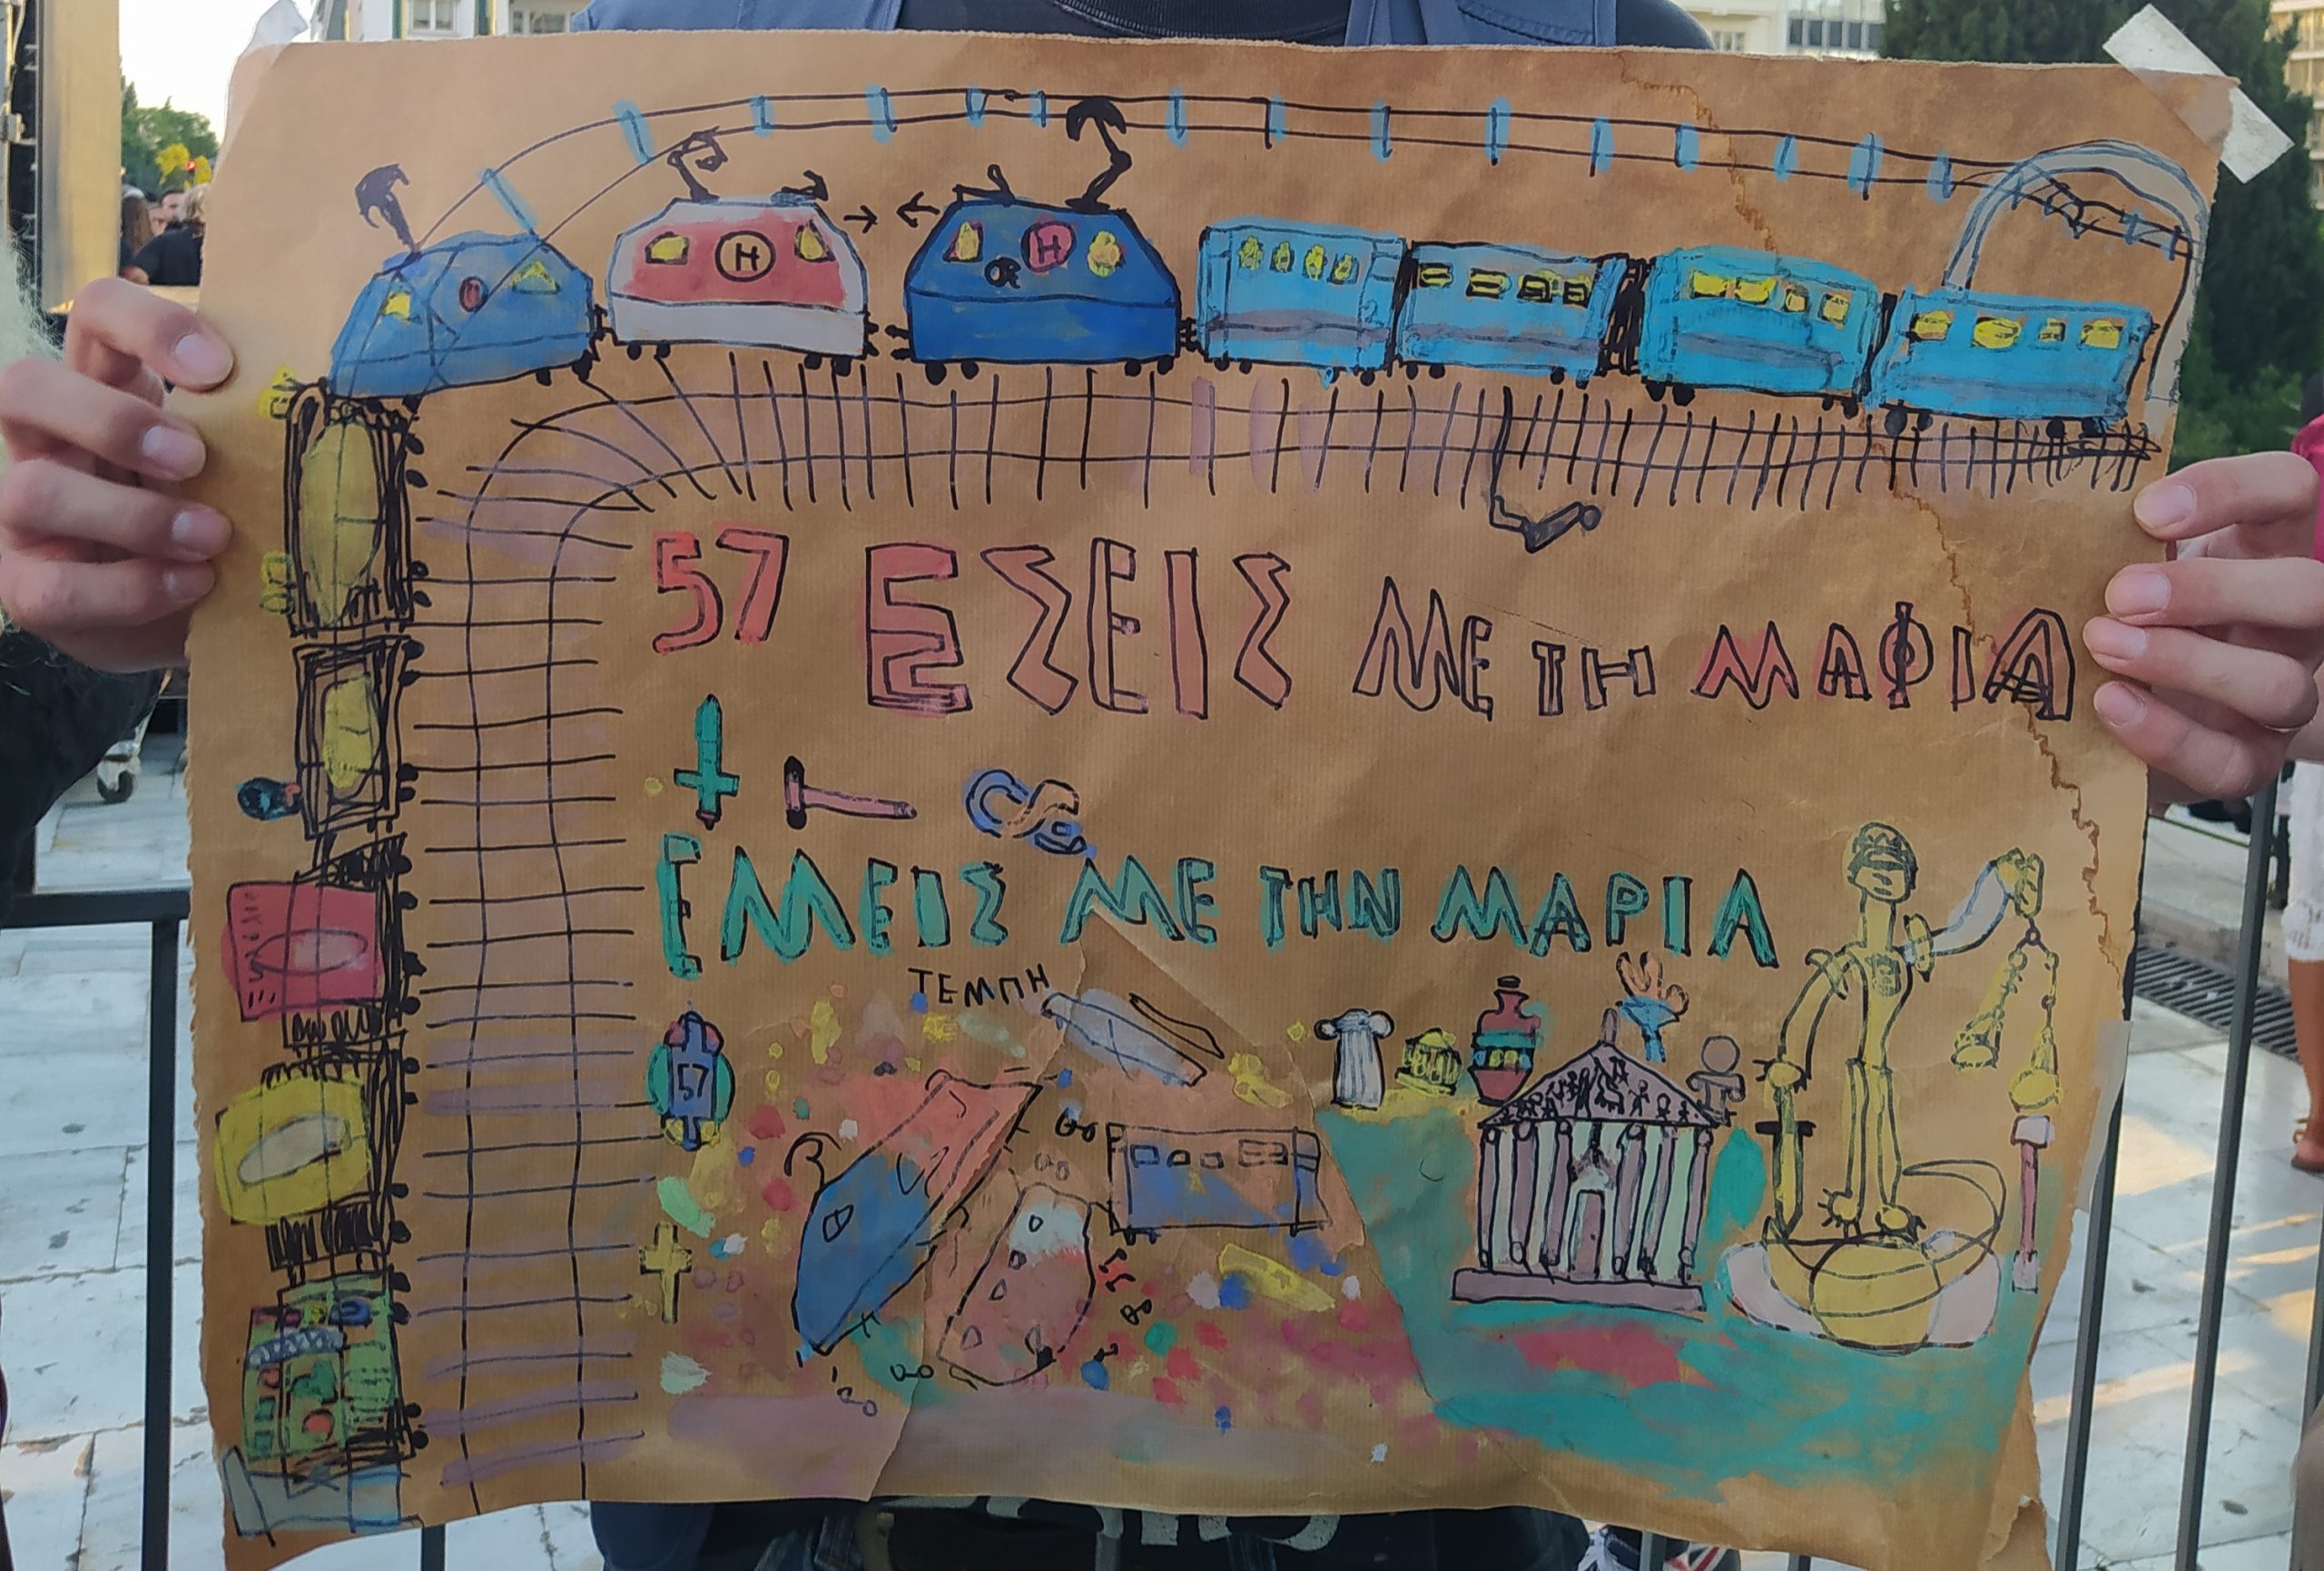 H
H
57 ΕΣΕΙΣ ΜΕ ΤΗ ΜΑΦΙΑ
ΕΜΕΙΣ ΜΕ ΤΗΝ ΜΑΡΙΑ
ΤΕΜΠΗ
57